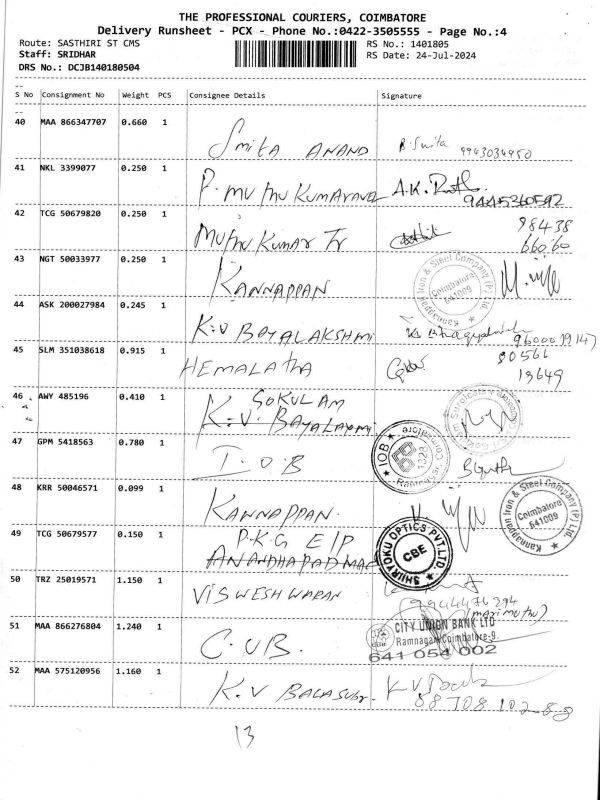 THE PROFESSIONAL COURIERS, COIMBATORE
Delivery Runsheet - PCX - Phone No.:0422-3505555 - Page No.:4
Route: SASTHIRI ST CMS
RS No.: 1401805
Staff: SRIDHAR
RS Date: 24-Jul-2024
DRS No.: DCJB140180504
S No Consignment No Weight PCS Consignee Details Signature
40 MAA 866347707 0.660 1
Smita ANAND B. Smita 9943034950
41 NKL 3399077 0.250 1
P. MUTHUKUMARAVEL A.K. 9445360592
42 TCG 50679820 0.250 1
Muthu Kumar Tr 98438
66060
43 NGT 50033977 0.250 1
KANNAPPAN
Kannappan Iron & Steel Company (P) Ltd.
Coimbatore
641009
44 ASK 200027984 0.245 1
K.V BAYALAKSHMI
45 SLM 351038618 0.915 1
HEMALATHA 90566
13649
46 AWY 485196 0.410 1
GOKULAM
K.V. BAYALAXMI
47 GPM 5418563 0.780 1
I.O.B
IOB
Coimbatore
1329
48 KRR 50046571 0.099 1
KANNAPPAN.
Kannappan Iron & Steel Company (P) Ltd.
Coimbatore
641009
49 TCG 50679577 0.150 1
P.K.G EIP
SHIRYOKU OPTICS PVT.LTD.
CBE
50 TRZ 25019571 1.150 1
VISWESHWARAN
9944476394
(marimuthu)
51 MAA 866276804 1.240 1
C.U.B.
CITY UNION BANK LTD
Ramnagar, Coimbatore-9.
641 054 002
52 MAA 575120956 1.160 1
K.V BALASUBR.
88708 102 88
13